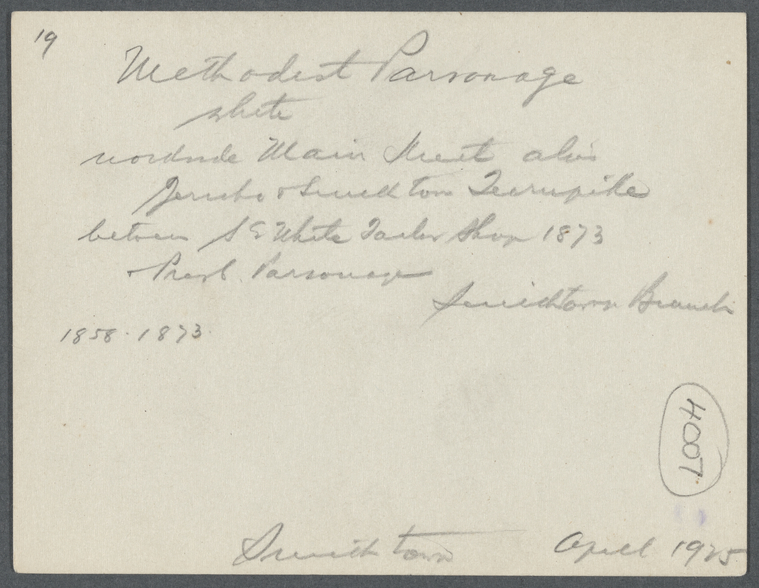 19
Methodist Parsonage
white
northside Main Street alias
Jericho & Smithtown Turnpike
between S E White Tailor Shop 1873
& Presb. Parsonage
Smithtown Branch
1858-1873
4007
Smithtown April 1925